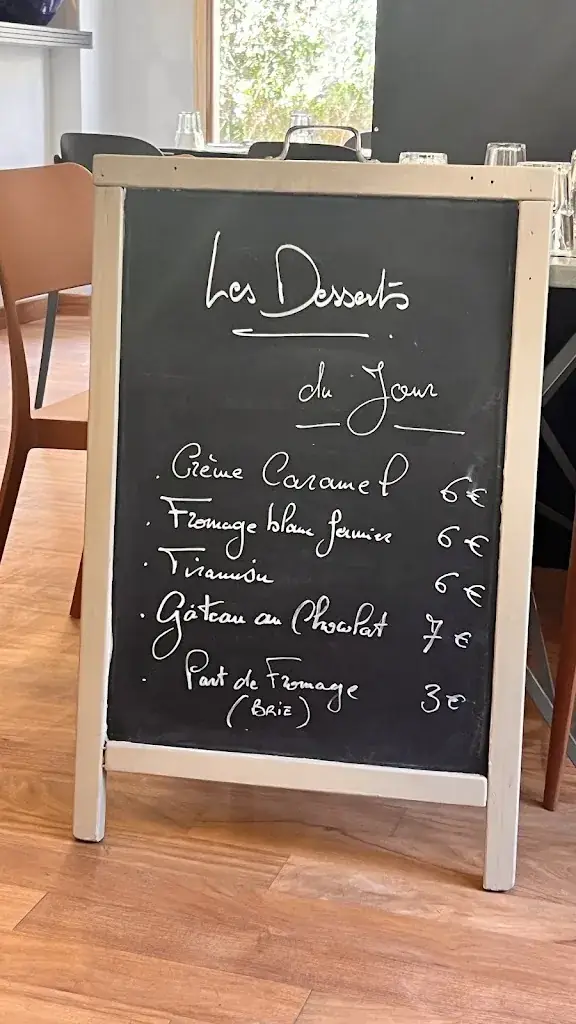 Les Desserts
du Jour
. Crème Caramel 6€
. Fromage blanc fermier 6€
. Tiramisu 6€
. Gâteau au Chocolat 7€
. Part de Fromage 3€
(BRIE)